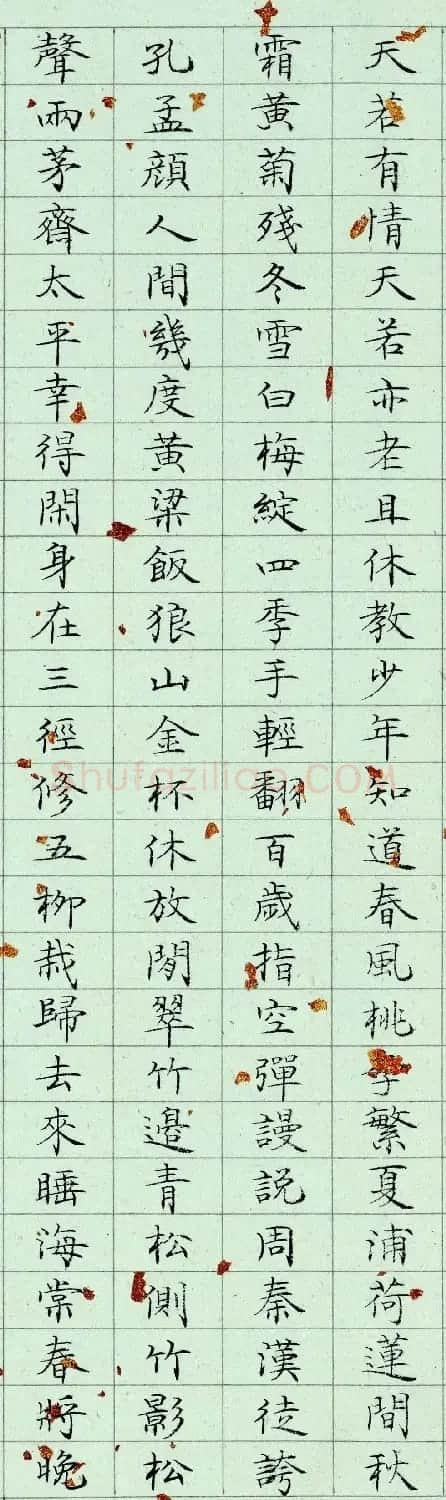 天若有情天若亦老且休教少年知道春風桃李繁夏浦荷蓮間秋
霜黃菊殘冬雪白梅綻四季手輕翻百歲指空彈謾説周秦漢徒誇
孔孟顏人間幾度黃粱飯狼山金杯休放閒翠竹邊青松側竹影松
聲兩茅齋太平幸得閑身在三徑修五柳栽歸去來睡海棠春將晚
Shufaziliao.COM